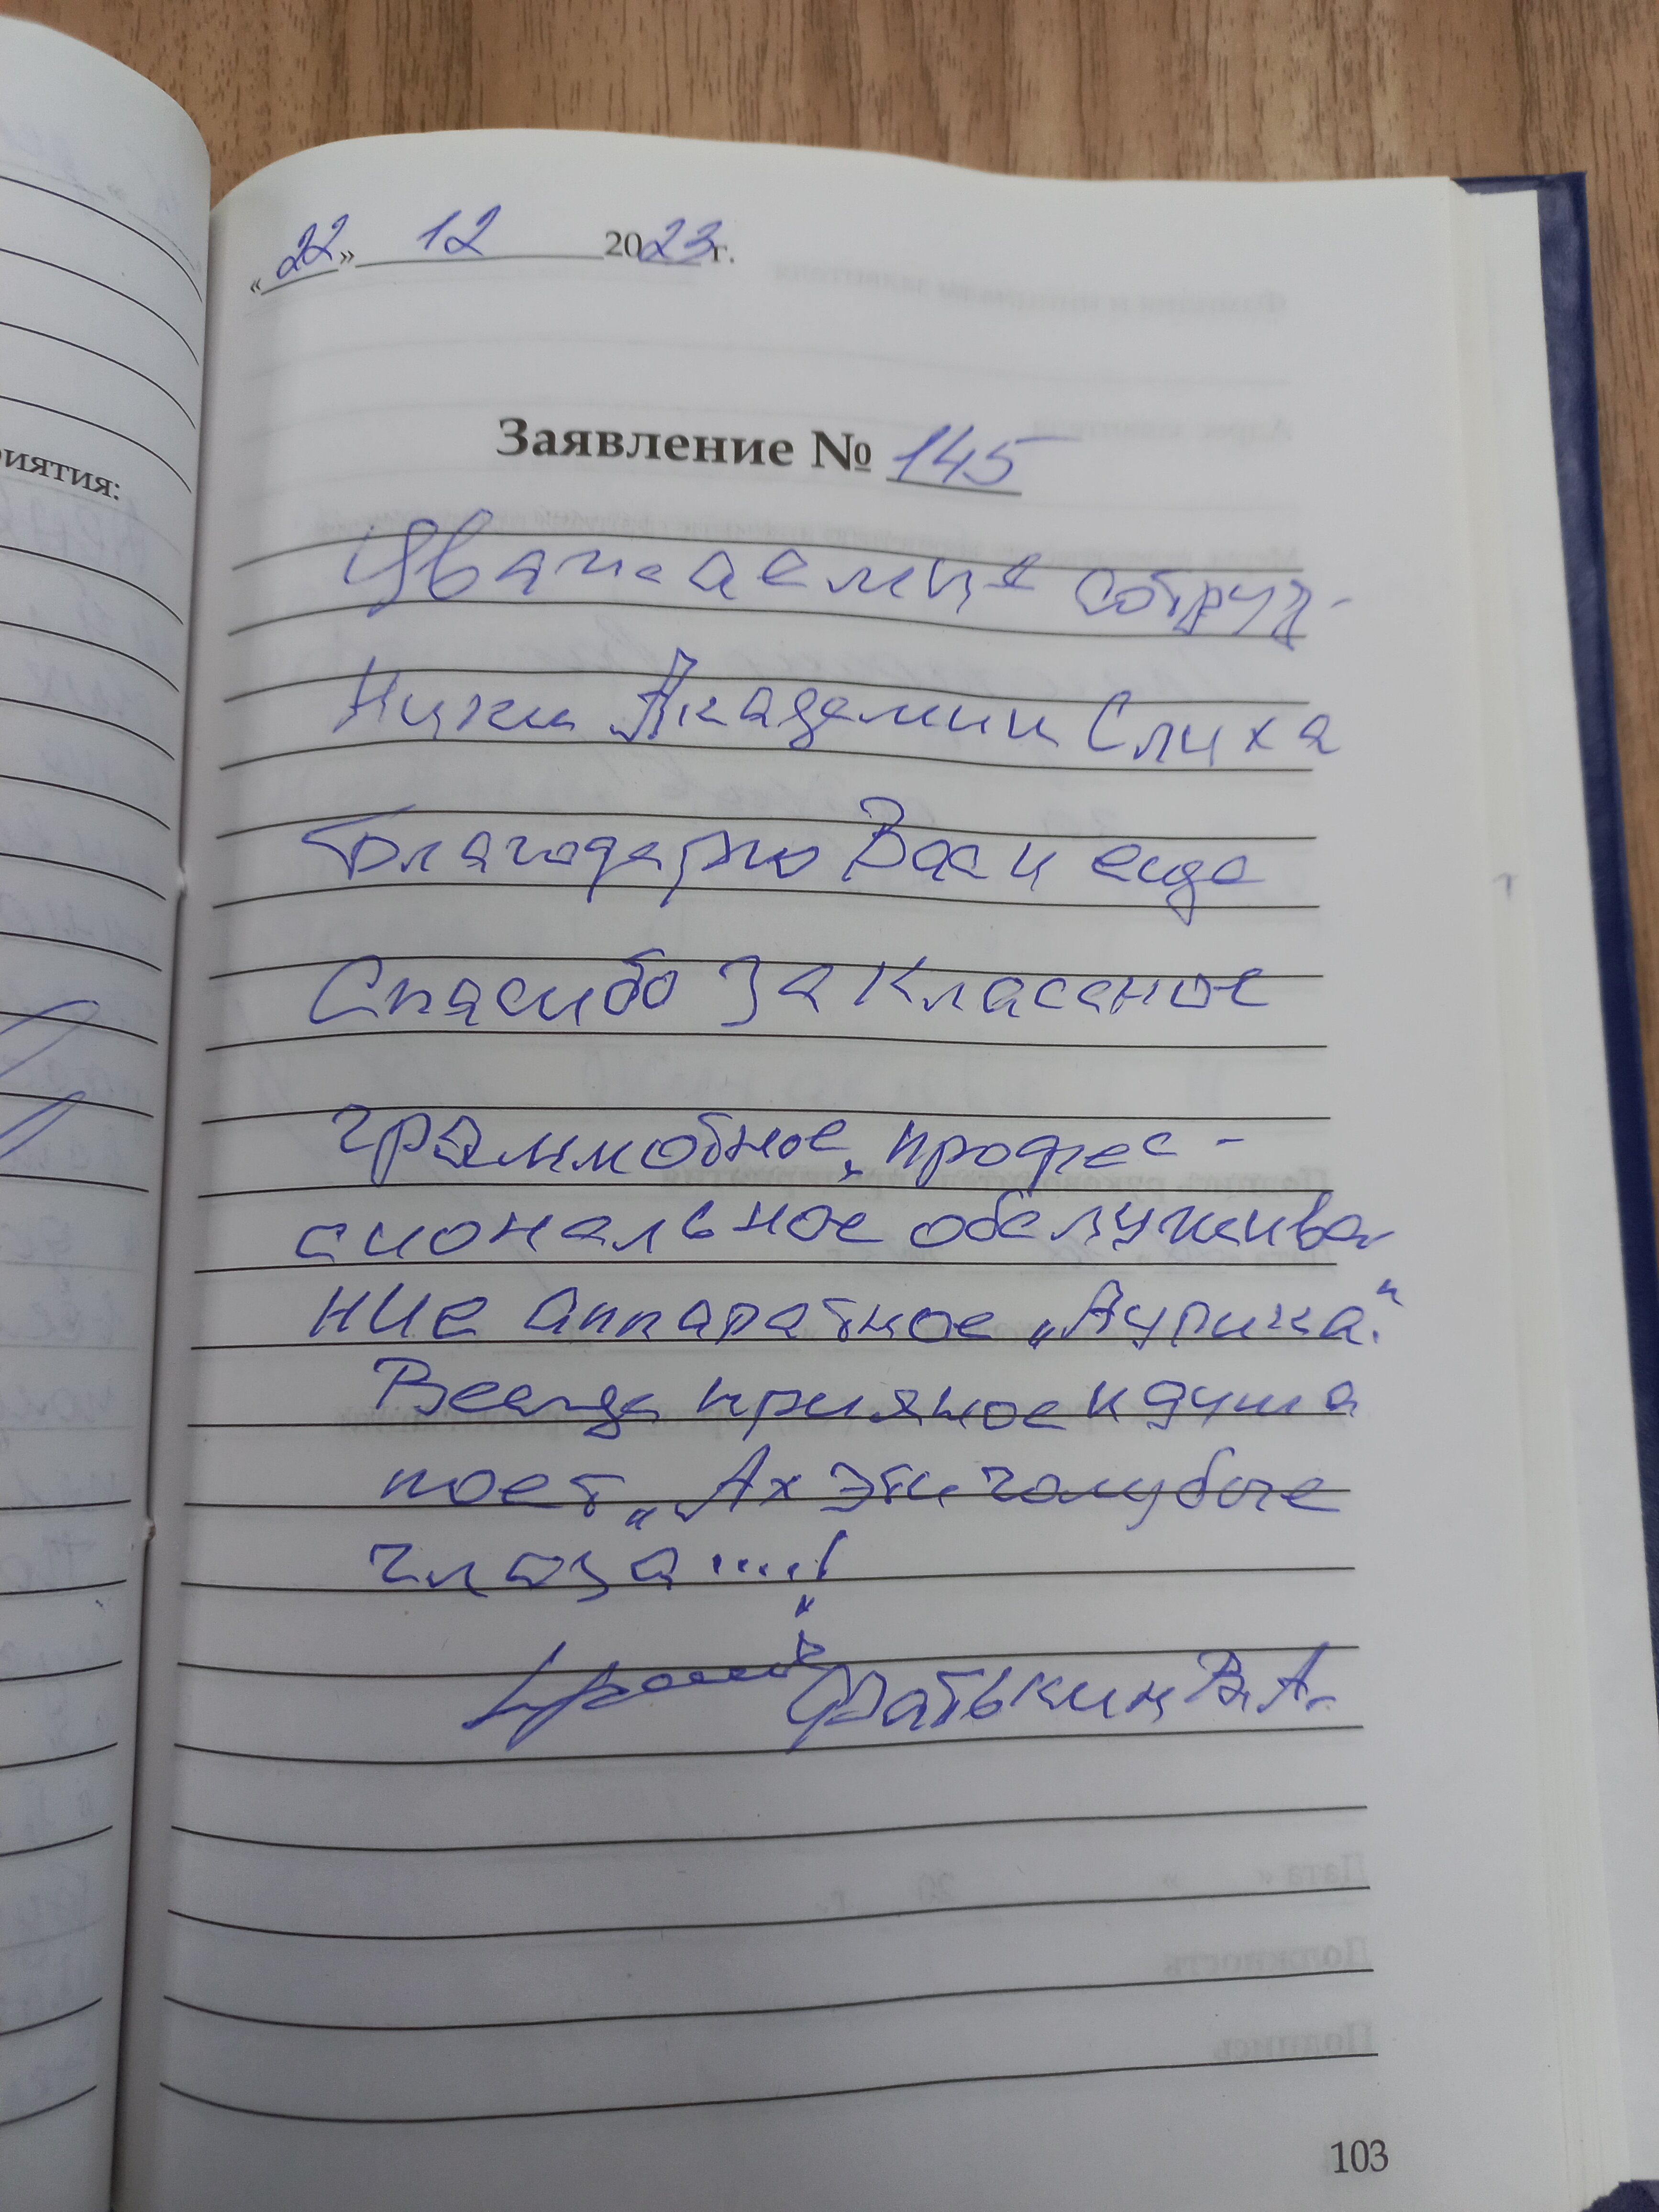 риятия:
«22» 12 2023г.
Заявление № 145
Уважаемые сотруд-
ники Академии Слуха
Благодарю Вас и еще
Спасибо за классное
граммотное, профес-
сиональное обслужива-
ние аппаратное „Аурика."
Всегда приятное и душа
поет „Ах эти голубые
глаза....!"
Фатькин В.А.
103